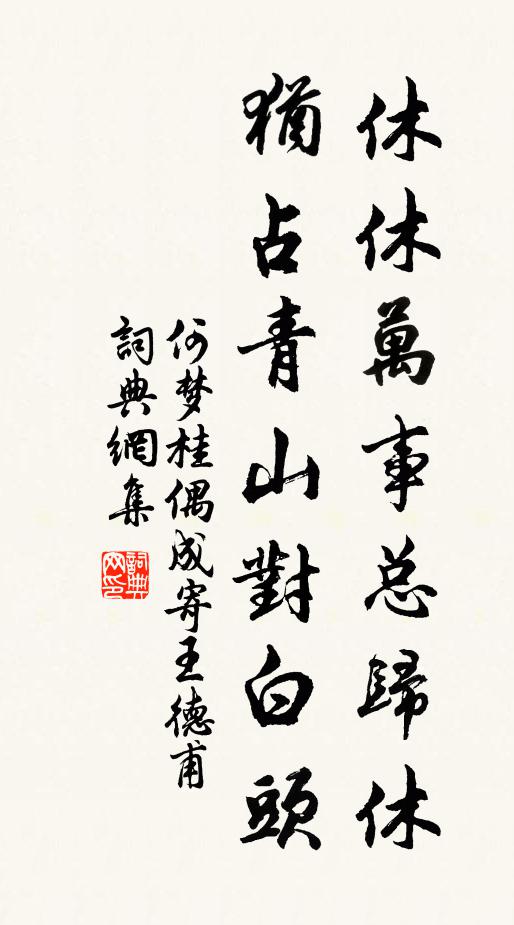 休休萬事总歸休
猶占青山對白頭
何梦桂偶成寄王德甫
詞典網集
詞典网印